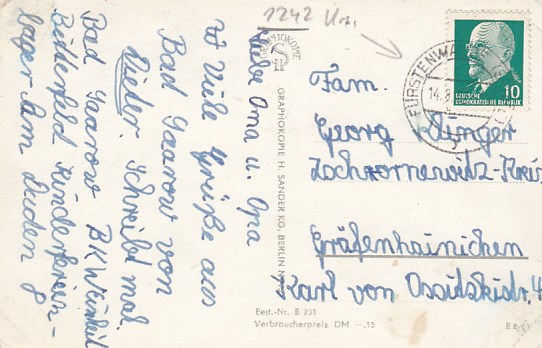 1242 Urk.
Liebe Oma u. Opa
Viele Grüße aus
Bad Saarow von
Dieter. Schreibt mal.
Bad Saarow BKW
Bitterfeld Kinderferien-
lager Am
GRAPHOKOPIE H. SANDER KG, BERLIN
FÜRSTENWAL
14.8
10
DEUTSCHE
DEMOKRATISCHE REPUBLIK
Fam.
Georg Klinger
Zschornewitz-Kreis
Gräfenhainichen
Karl von Ossitzkistr. 4
Best.-Nr. B 231
Verbraucherpreis DM —,15